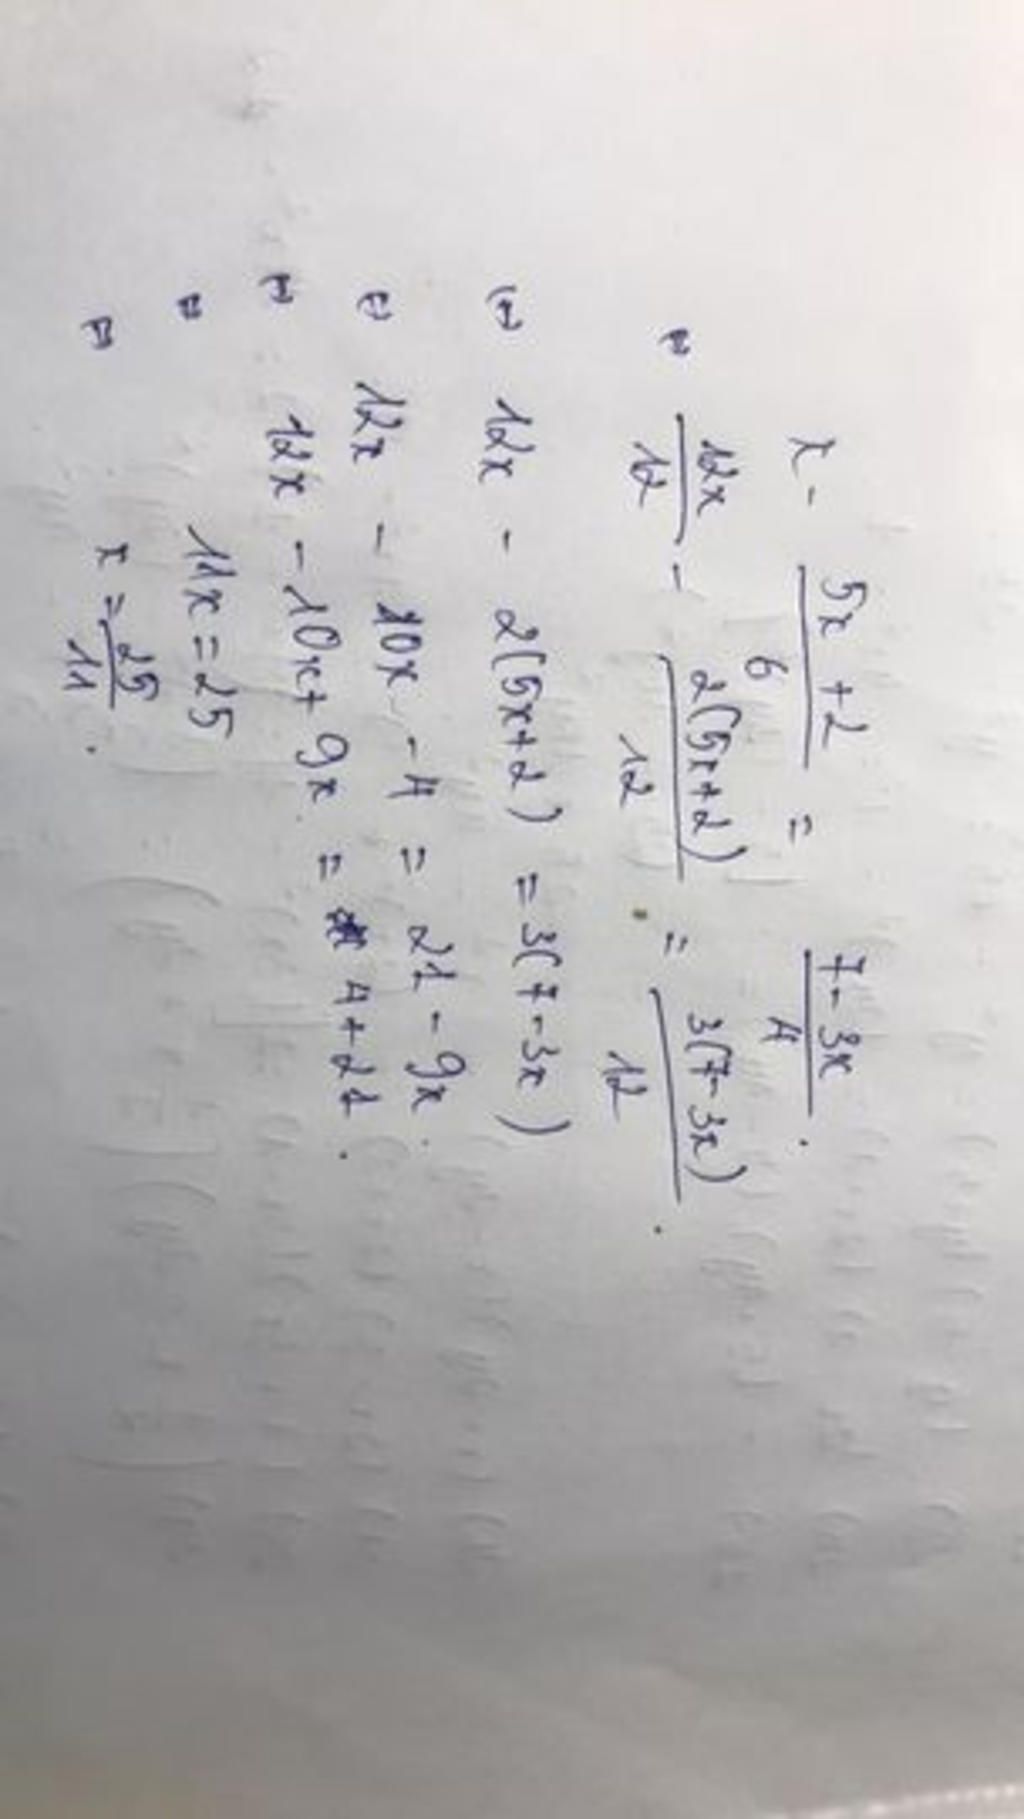 x - \frac{5x+2}{6} = \frac{7-3x}{4}.
⇔ \frac{12x}{12} - \frac{2(5x+2)}{12} = \frac{3(7-3x)}{12}.
⇔ 12x - 2(5x+2) = 3(7-3x)
⇔ 12x - 10x - 4 = 21 - 9x.
⇔ 12x - 10x + 9x = 4 + 21.
⇔ 11x = 25
⇔ x = \frac{25}{11}.